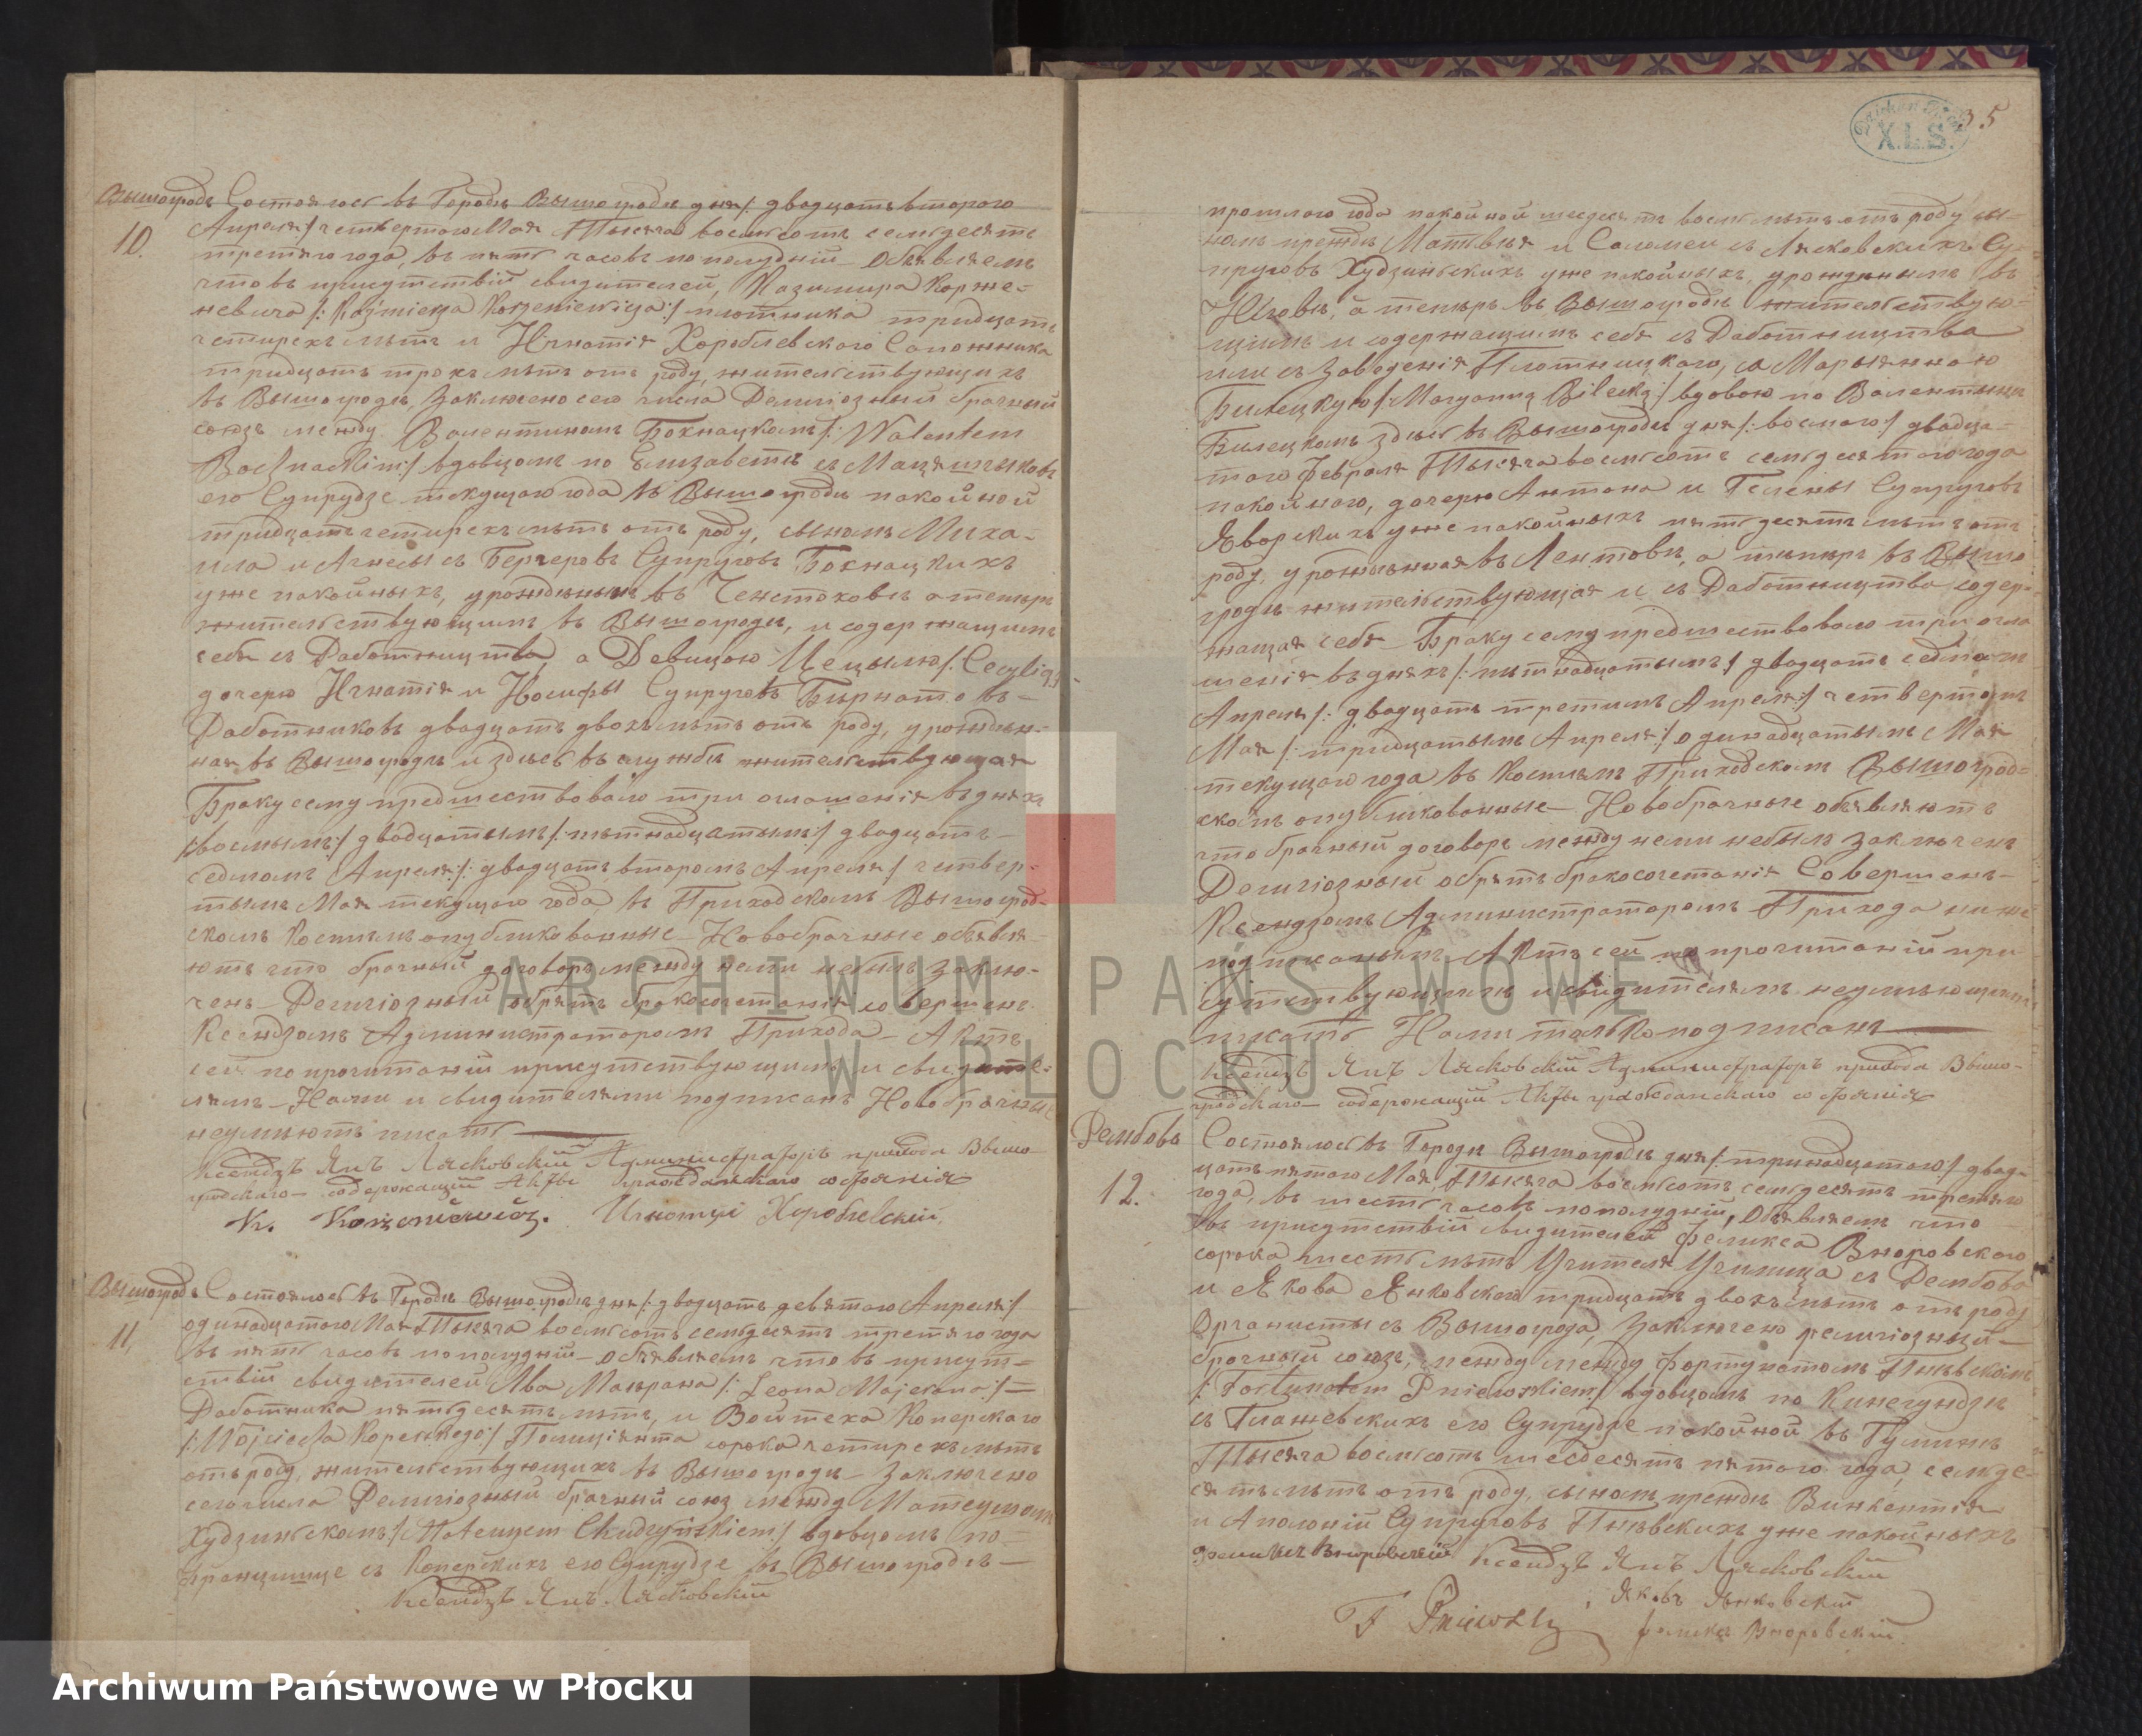 Вышогродъ Состоялось въ Городѣ Вышогродѣ дня /: двадцать втораго
10. Апрѣля :/ четвертого Мая Тысяча восемьсотъ семьдесятъ
третяго года, въ пять часовъ пополудній – Объявляемъ
что въ присутствій свидѣтелей, Казимира Корже-
невича /: Kaźmierza Korzeniewicza :/ плотника тридцать
четирехъ лѣтъ и Игнатія Хороблевского Сапожника
тридцать трохъ лѣтъ отъ роду, жительствующихъ
въ Вышогродѣ, Заключено сего числа Религіозный брачный
союзъ между Валентиномъ Бохнацкомъ /: Walentem
Bochnackim :/ вдовцомъ по Елизаветѣ съ
его Супрудзе текущаго года въ Вышогродѣ покойной
тридцать четирехъ лѣтъ отъ роду, сыномъ Миха-
ила и Агнесы съ Бергеровъ Супруговъ Бохнацкихъ
уже покойныхъ, урожденнымъ въ Ченстоховѣ а теперь
жительствующимъ въ Вышогродѣ, и содержащимъ
себя съ Работництва, а Девицою Цецылю /: Cecylią :/
дочерю Игнатія и Иосифы Супруговъ Бирнатовъ –
Работниковъ двадцать двохъ лѣтъ отъ роду, урожден-
ная въ Вышогродѣ и здѣсь въ службѣ жительствующая
Браку сему предшествовало три оглашенія въ дняхъ
/: восьмымъ :/ двадцатымъ /: пятнадцатымъ :/ двадцать –
седмомъ Апрѣля :/: двадцать второмъ Апрѣля :/ четвер-
тымъ Мая текущаго года, въ Приходскомъ Вышогрод-
скомъ Костелѣ опубликованные – Новобрачные объявля-
ютъ что брачный договоръ между нами небылъ заклю-
ченъ – Религіозный обрятъ бракосочетанія совершенъ
Ксендзомъ Администраторомъ Прихода – Актъ
сей по прочитаній присутствующимъ и свидѣте-
лямъ – Нами и свидѣтелями подписанъ Новобрачные
неумѣютъ писать
Ксендзъ Янъ Лясковскій Администраторъ прихода Вышо-
гродскаго – содержащій Акты гражданскаго состоянія
K. Korzeniewicz. Игнатій Хороблевскій.
Вышогродъ Состоялось въ Городѣ Вышогродѣ дня /: двадцать девятого Апрѣля :/
11. одинадцатого Мая Тысяча восемьсотъ семьдесятъ третяго года
въ пять часовъ пополудній – Объявляемъ что въ присут-
ствій свидѣтелей Лва Маерана /: Leona Majerana :/ –
Работника пятьдесятъ лѣтъ, и Войтеха Коперского
/: Wojciecha Koperskiego :/ Полиціянта сорока четирехъ лѣтъ
отъ роду, жительствующихъ въ Вышогродѣ – Заключено
сего числа Религіозный брачный союзъ между Матеушомъ
Худзинскомъ /: Mateuszem Chudzyńskiem :/ вдовцомъ по –
Францишце съ Коперскихъ его Супрудзе въ Вышогродѣ –
Ксендзъ Янъ Лясковскій
35
X.L.S.
прошлого года покойной шесдесятъ восемь лѣтъ отъ роду сы-
номъ прежде Матвѣя и Саломеи съ Лясковскихъ Су-
пруговъ Худзинскихъ уже покойныхъ, урожденнымъ въ
а теперь въ Вышогродѣ жительствую-
щимъ и содержащимъ себя съ Работництва
или съ Заведенія Плотницкого, а Марыянною
Билецкую /: Maryanną Bilecką :/ вдовою по Валентымъ
Билецкомъ здѣсь въ Вышогродѣ дня /: восмого :/ двадца-
того Февраля Тысяча восемьсотъ семьдесятого года
покойного, дочерю Антона и Гелены Супруговъ
Яворскихъ уже покойныхъ пятьдесятъ лѣтъ отъ
роду, урожденная въ Лентовѣ, а теперь въ Вышо
гродѣ жительствующая и съ Работництва содер-
жащая себя – Браку сему предшествовало три огла
шенія въ дняхъ /: пятнадцатымъ :/ двадцать седмомъ
Апрѣля /: двадцать третимъ Апрѣля :/ четвертымъ
Мая /: тридцатымъ Апрѣля :/ одинадцатымъ Мая
текущаго года въ Костелѣ Приходскомъ Вышогрод-
скомъ опубликованные – Новобрачные объявляютъ
что брачный договоръ между нами небылъ заключенъ
Религіозный обрятъ бракосочетанія Совершенъ –
Ксендзомъ Администраторомъ Прихода ниже
подписанымъ Актъ сей по прочитаній при
сутствующимъ и свидѣтелямъ неумѣющимъ
писать Нами только подписанъ
Ксендзъ Янъ Лясковскій Администраторъ прихода Вышо-
гродскаго – содержащій Акты гражданскаго состоянія
Рембовъ Состоялось въ Городѣ Вышогродѣ дня /: тринадцатого :/ двад-
12. цать пятого Мая, Тысяча восемьсотъ семьдесятъ третяго
года, въ шесть часовъ пополудній, Объявляемъ что
въ присутствій свидѣтелей Феликса Вноровского
сорока шесть лѣтъ Учителя Училища съ Рембова
и Якова Янковского тридцать двохъ лѣтъ отъ роду
Органисты съ Вышогрода, Заключено религіозный –
брачный союзъ, между между Фортунатомъ Пнѣвскомъ
/: Fortunatem Pniewskiem :/ вдовцомъ по Кинегундзѣ
съ его Супрудзе покойной въ Гулинѣ
Тысяча восемьсотъ шесдесятъ пятого года, семьде-
сятъ лѣтъ отъ роду, сыномъ прежде Винкентія
и Аполоній Супруговъ Пнѣвскихъ уже покойныхъ
Феликсъ Вноровскій Ксендзъ Янъ Лясковскій
Яковъ Янковскій
F Pniewski Феликсъ Вноровскій
ARCHIWUM PAŃSTWOWE
W PŁOCKU
Archiwum Państwowe w Płocku